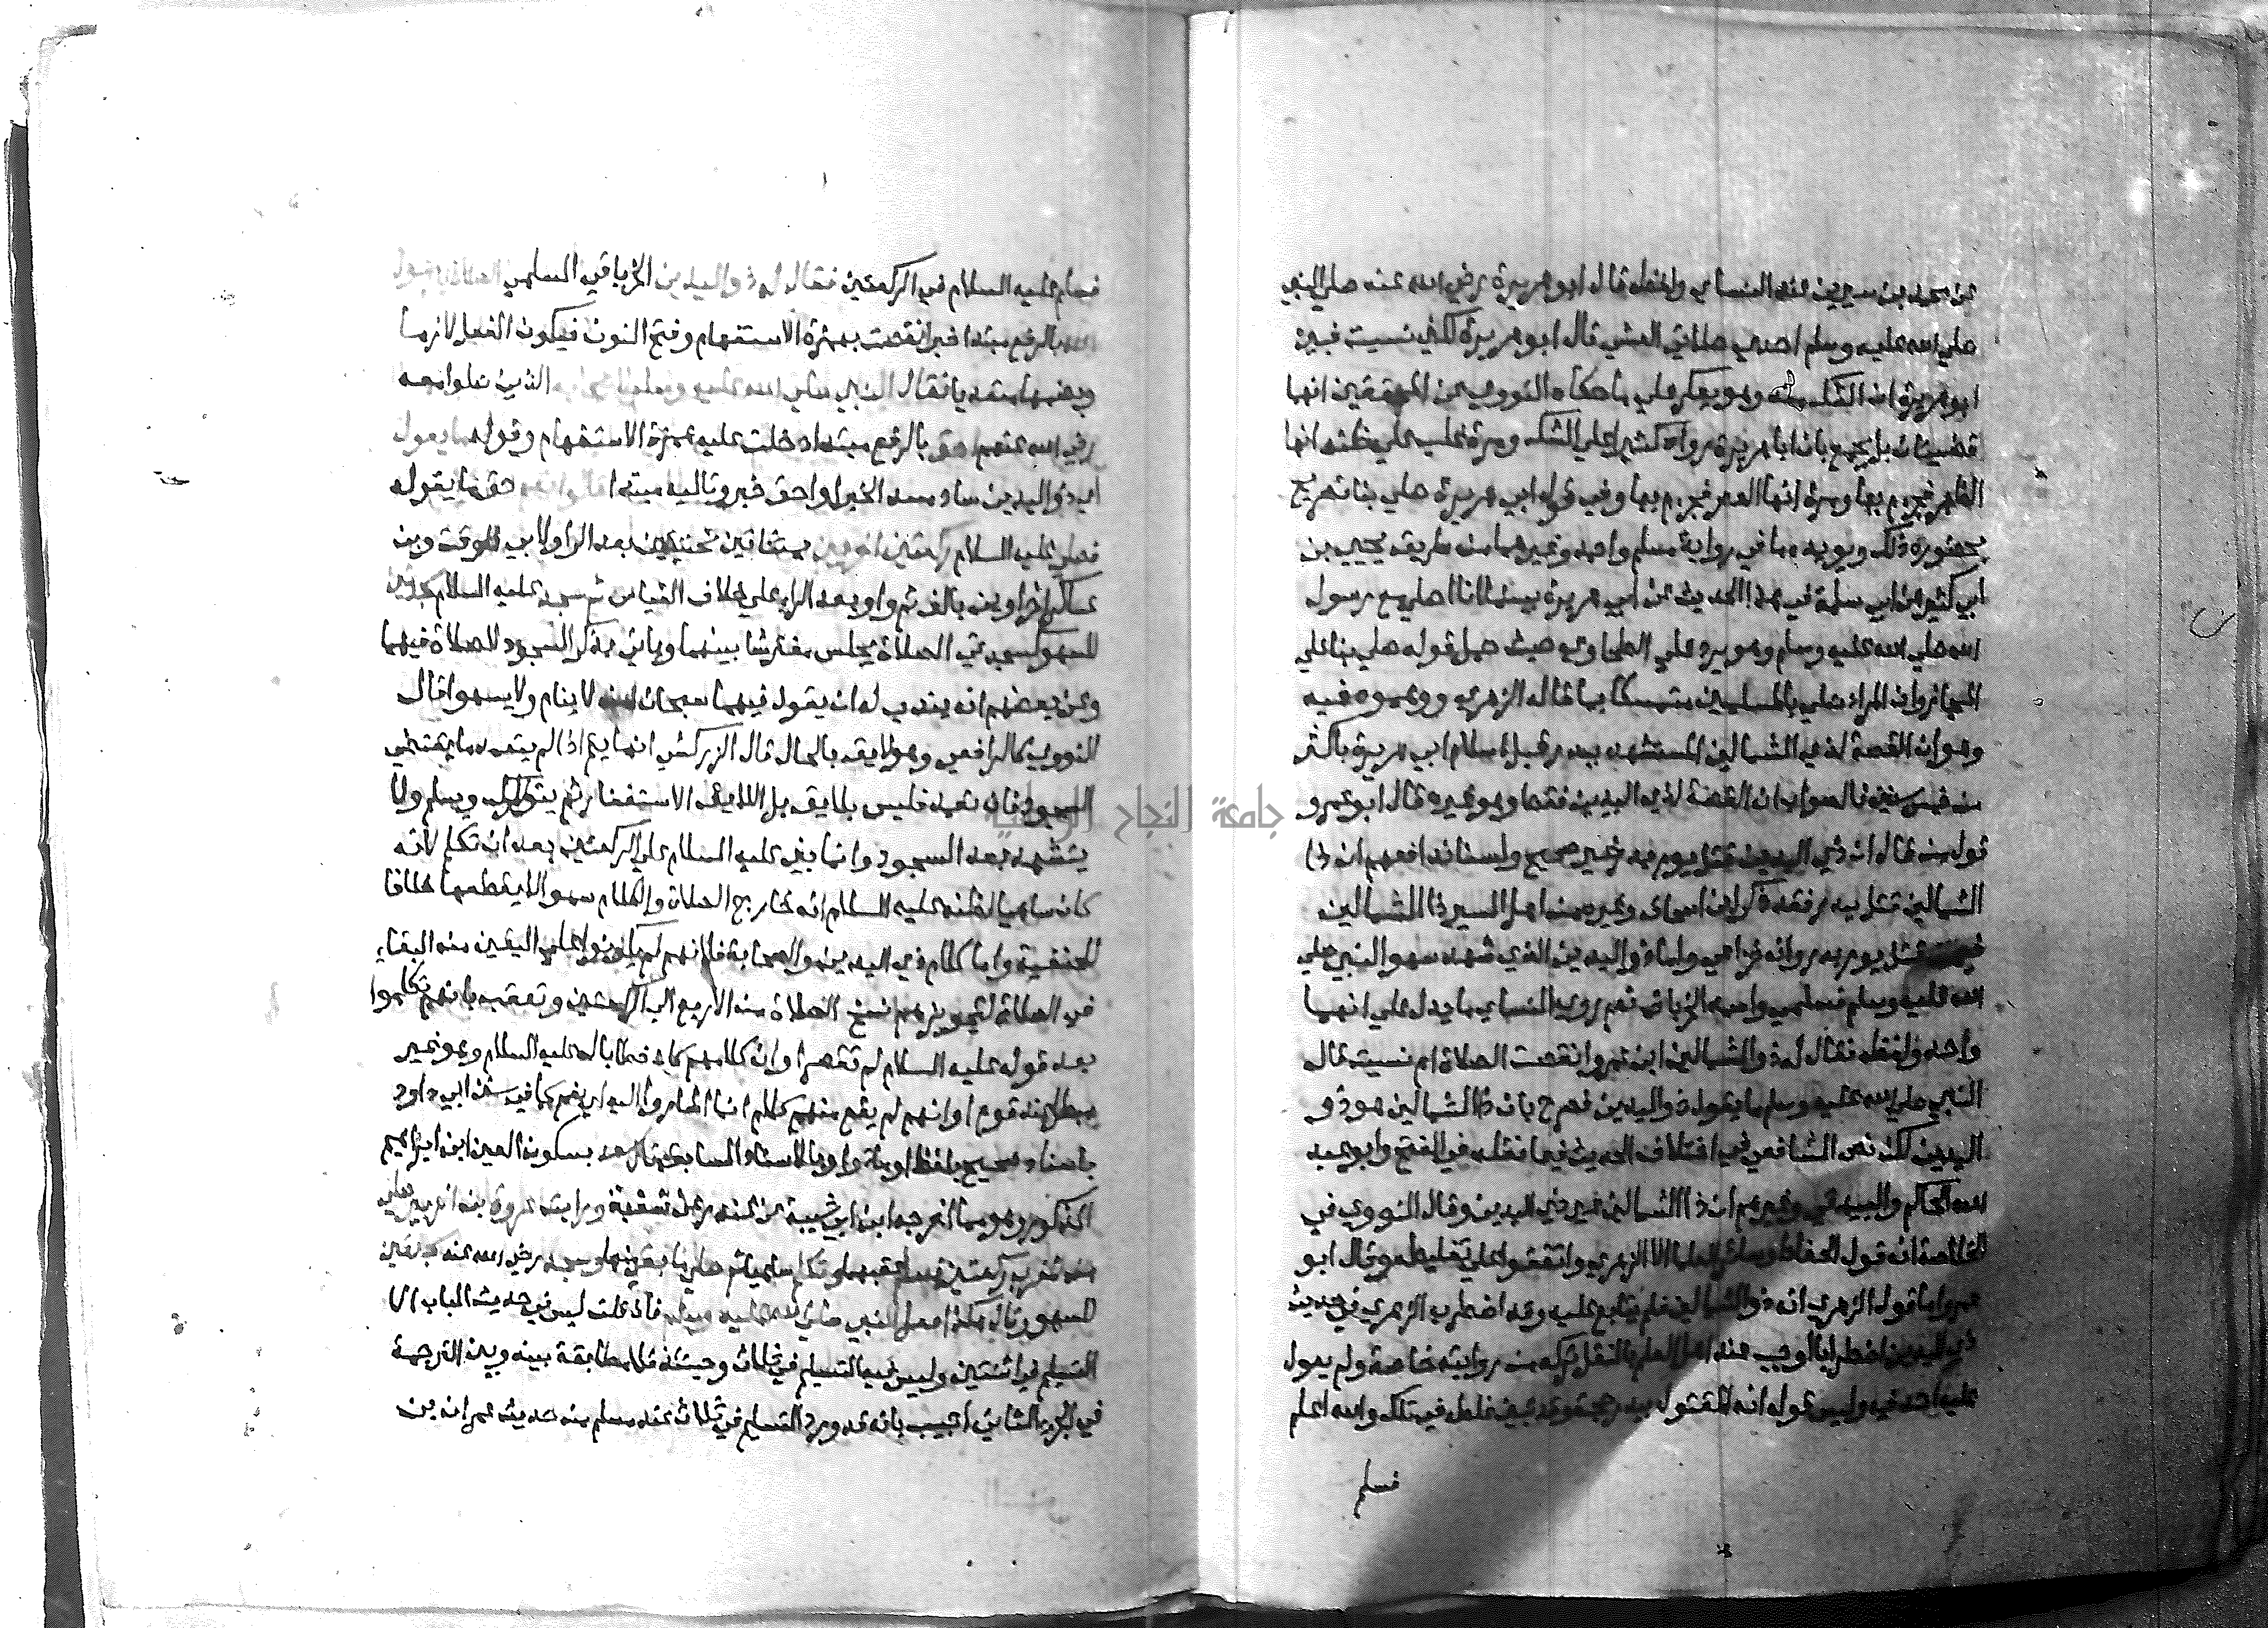 عن محمد بن سيرين عند النساي ولفظه قال ابو هريرة رضي الله عنه صلي النبي
صلي الله عليه وسلم احدي صلاتي العشي قال ابو هريرة لكني نسيت فبين
ابو هريرة ان الشك منه وهو يعكر علي ما حكاه النووي عن المحققين انهما
قضيتان بل يجمع بان ابا هريرة رواه كثيرا علي الشك ومرة غلب علي ظنه انها
الظهر فجزم بها ومرة انها العصر فجزم بها وفي قول ابي هريرة صلي بنا تصريح
بحضوره ذلك ويويده ما في رواية مسلم واحمد وغيرهما من طريق يحيي بن
ابي كثير عن ابي سلمة في هذا الحديث عن ابي هريرة بينما انا اصلي مع رسول
الله صلي الله عليه وسلم وهو يرد علي الطحاوي حيث حمل قوله صلي بنا علي
المجاز وان المراد صلي بالمسلمين متمسكا بما قاله الزهري ووهموه فيه
وهو ان القصة لذي الشمالين المستشهد ببدر قبل اسلام ابي هريرة باكثر
من خمس سنين فالصواب ان القصة لذي اليدين فقط وهو غيره قال ابو عمرو
قول من قال ان ذي اليدين قتل يوم بدر غير صحيح ولسنا ندافعهم ان ذا
الشمالين قتل ببدر فقد ذكر ابن اسحاق وغيره من اهل السير ذا الشمالين
فيمن قتل يوم بدر وانه خزاعي واما ذو اليدين الذي شهد سهو النبي صلي
الله عليه وسلم فسلمي واسمه الخرباق نعم روي النساي ما يدل علي انهما
واحد ولفظه فقال له ذو الشمالين ابن عمرو انقصت الصلاة ام نسيت فقال
النبي صلي الله عليه وسلم ما يقول ذو اليدين فصرح بان ذا الشمالين هو ذو
اليدين لكن نص الشافعي في اختلاف الحديث فيما نقله في الفتح وابو عبد
الله الحاكم والبيهقي وغيرهم ان ذا الشمالين غير ذي اليدين وقال النووي في
الخلاصة انه قول الحفاظ وسائر العلما الا الزهري واتفقوا علي تغليطه وقال ابو
عمر واما قول الزهري انه ذو الشمالين فلم يتابع عليه وقد اضطرب الزهري في حديث
ذي اليدين اضطرابا اوجب عند اهل العلم بالنقل تركه من روايته خاصة ولم يعول
عليه احد فيه وليس قوله انه المقتول ببدر حجة وقد تبين غلطه في تلك والله اعلم
فسلم
فسلم عليه السلام في الركعتين فقال له ذو اليدين الخرباق السلمي الصلاة
بالرفع مبتدا خبره انقصت بهمزة الاستفهام وفتح النون فيكون الفعل لازما
وبضمها متعديا فقال النبي صلي الله عليه وسلم الذين صلوا معه
رضي الله عنهم احق بالرفع مبتدا دخلت عليه همزة الاستفهام وقوله ما يقول
اي ذو اليدين ساد مسد الخبر او احق خبر وتاليه مبتدا حق ما يقوله
فصلي عليه السلام ركعتين اخريين بمثناتين تحتيتين بعد الرا ولابي الوقت وبن
عساكر اخراوين بالف ثم واو بعد الرا علي خلاف القياس ثم سجد عليه السلام سجدتين
للسهو كسجدتي الصلاة يجلس مفترشا بينهما وياتي بذكر السجود للصلاة فيهما
وعن بعضهم انه يندب له ان يقول فيهما سبحان من لا ينام ولا يسهوا قال
النووي كالرافعي وهو لايق بالحال قال الزركشي انما يتم اذا لم يتعمد ما يقتضي
السجود فان تعمد فليس بلايق بل اللايق الاستغفار ثم يتورك ويسلم ولا
يتشهد بعد السجود وانما بني عليه السلام علي الركعتين بعد ان تكلم لانه
كان ساهيا لظنه عليه السلام انه خارج الصلاة والكلام سهوا لا يقطعها خلافا
للحنفية واما كلام ذي اليدين والصحابة فلانهم لم يكونوا علي اليقين من البقاء
في الصلاة لتجويزهم نسخ الصلاة من الاربع الي الركعتين وتعقب بانهم تكلموا
بعد قوله عليه السلام لم تقصر او ان كلامهم كان خطابا له عليه السلام وهو غير
مبطل عند قوم او انهم لم يقع منهم كلام انما اشاروا اليه اي نعم كما في سنن ابي داود
باسناد صحيح بلفظ اومئوا وبالاسناد السابق قال سعد بسكون العين ابن ابراهيم
المذكور وهو مما اخرجه ابن ابي شيبة عن غندر عن شعبة ورايت عروة بن الزبير صلي
من المغرب ركعتين فسلم عقبهما وتكلم ساهيا ثم صلي ما بقي منها وسجد رضي الله عنه سجدتين
للسهو وقال هكذا فعل النبي صلي الله عليه وسلم فان قلت ليس في حديث الباب الا
التسليم في اثنتين وليس فيه التسليم في ثلاث وحينئذ فلا مطابقة بينه وبين الترجمة
في الجزء الثاني اجيب بانه قد ورد التسليم في ثلاث عند مسلم من حديث عمران بن
جامعة النجاح الوطنية